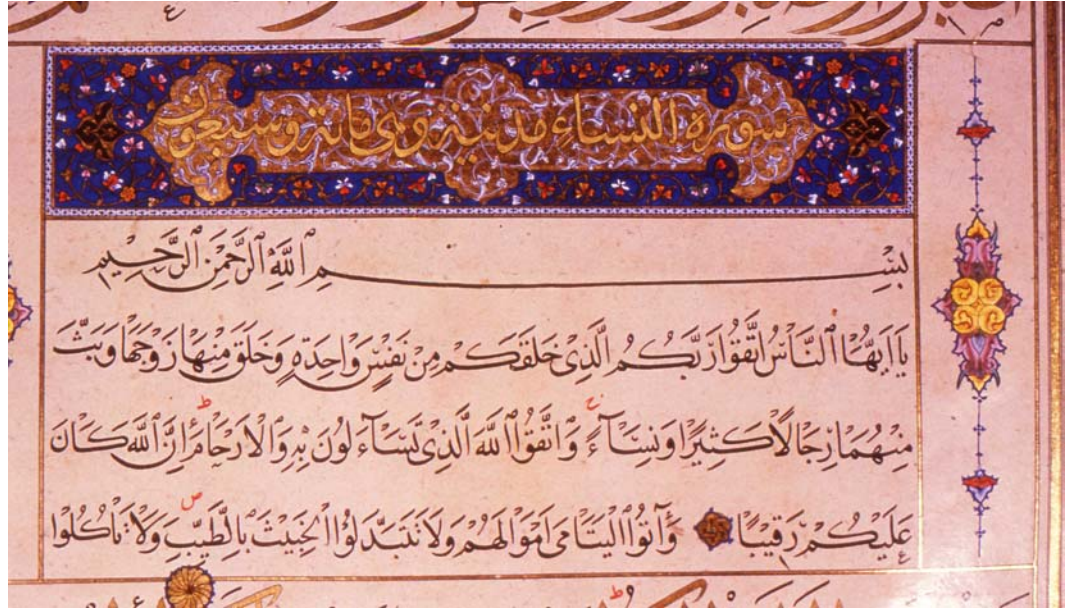 سورة النساء مدنية وهي مائة وسبعون
بِسْمِ اللَّهِ الرَّحْمَٰنِ الرَّحِيمِ
يَا أَيُّهَا النَّاسُ اتَّقُوا رَبَّكُمُ الَّذِي خَلَقَكُمْ مِنْ نَفْسٍ وَاحِدَةٍ وَخَلَقَ مِنْهَا زَوْجَهَا وَبَثَّ
مِنْهُمَا رِجَالًا كَثِيرًا وَنِسَاءً وَاتَّقُوا اللَّهَ الَّذِي تَسَاءَلُونَ بِهِ وَالْأَرْحَامَ إِنَّ اللَّهَ كَانَ
عَلَيْكُمْ رَقِيبًا وَآتُوا الْيَتَامَى أَمْوَالَهُمْ وَلَا تَتَبَدَّلُوا الْخَبِيثَ بِالطَّيِّبِ وَلَا تَأْكُلُوا